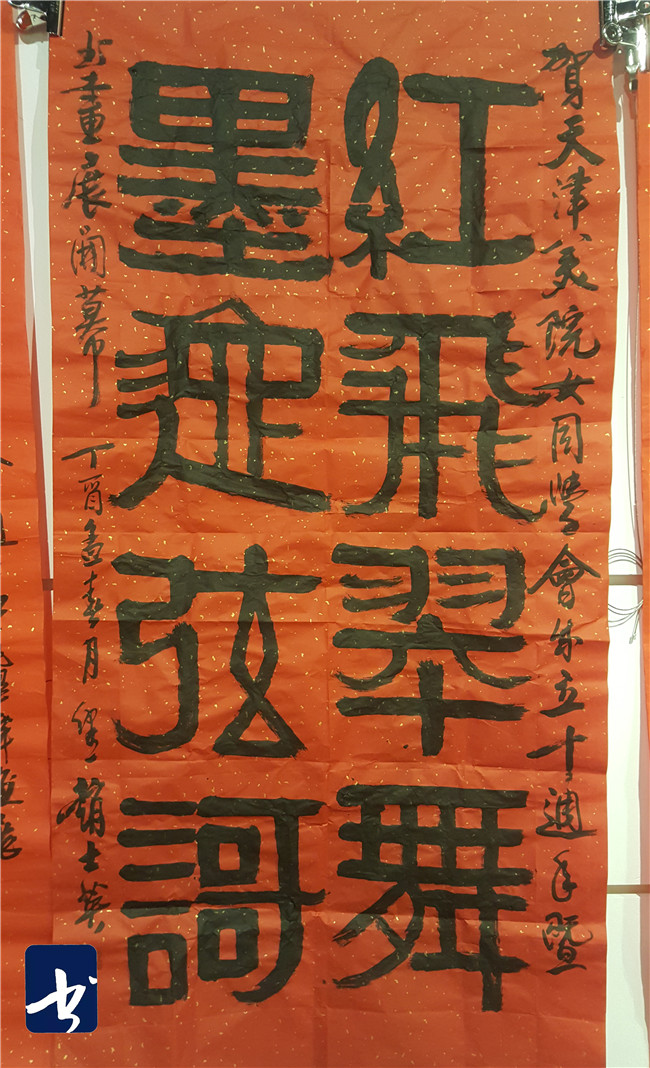 賀天津美院女同學會成五十週年暨
紅飛翠舞
墨弦訶
书畫展開幕 丁酉春月 趙士英
书